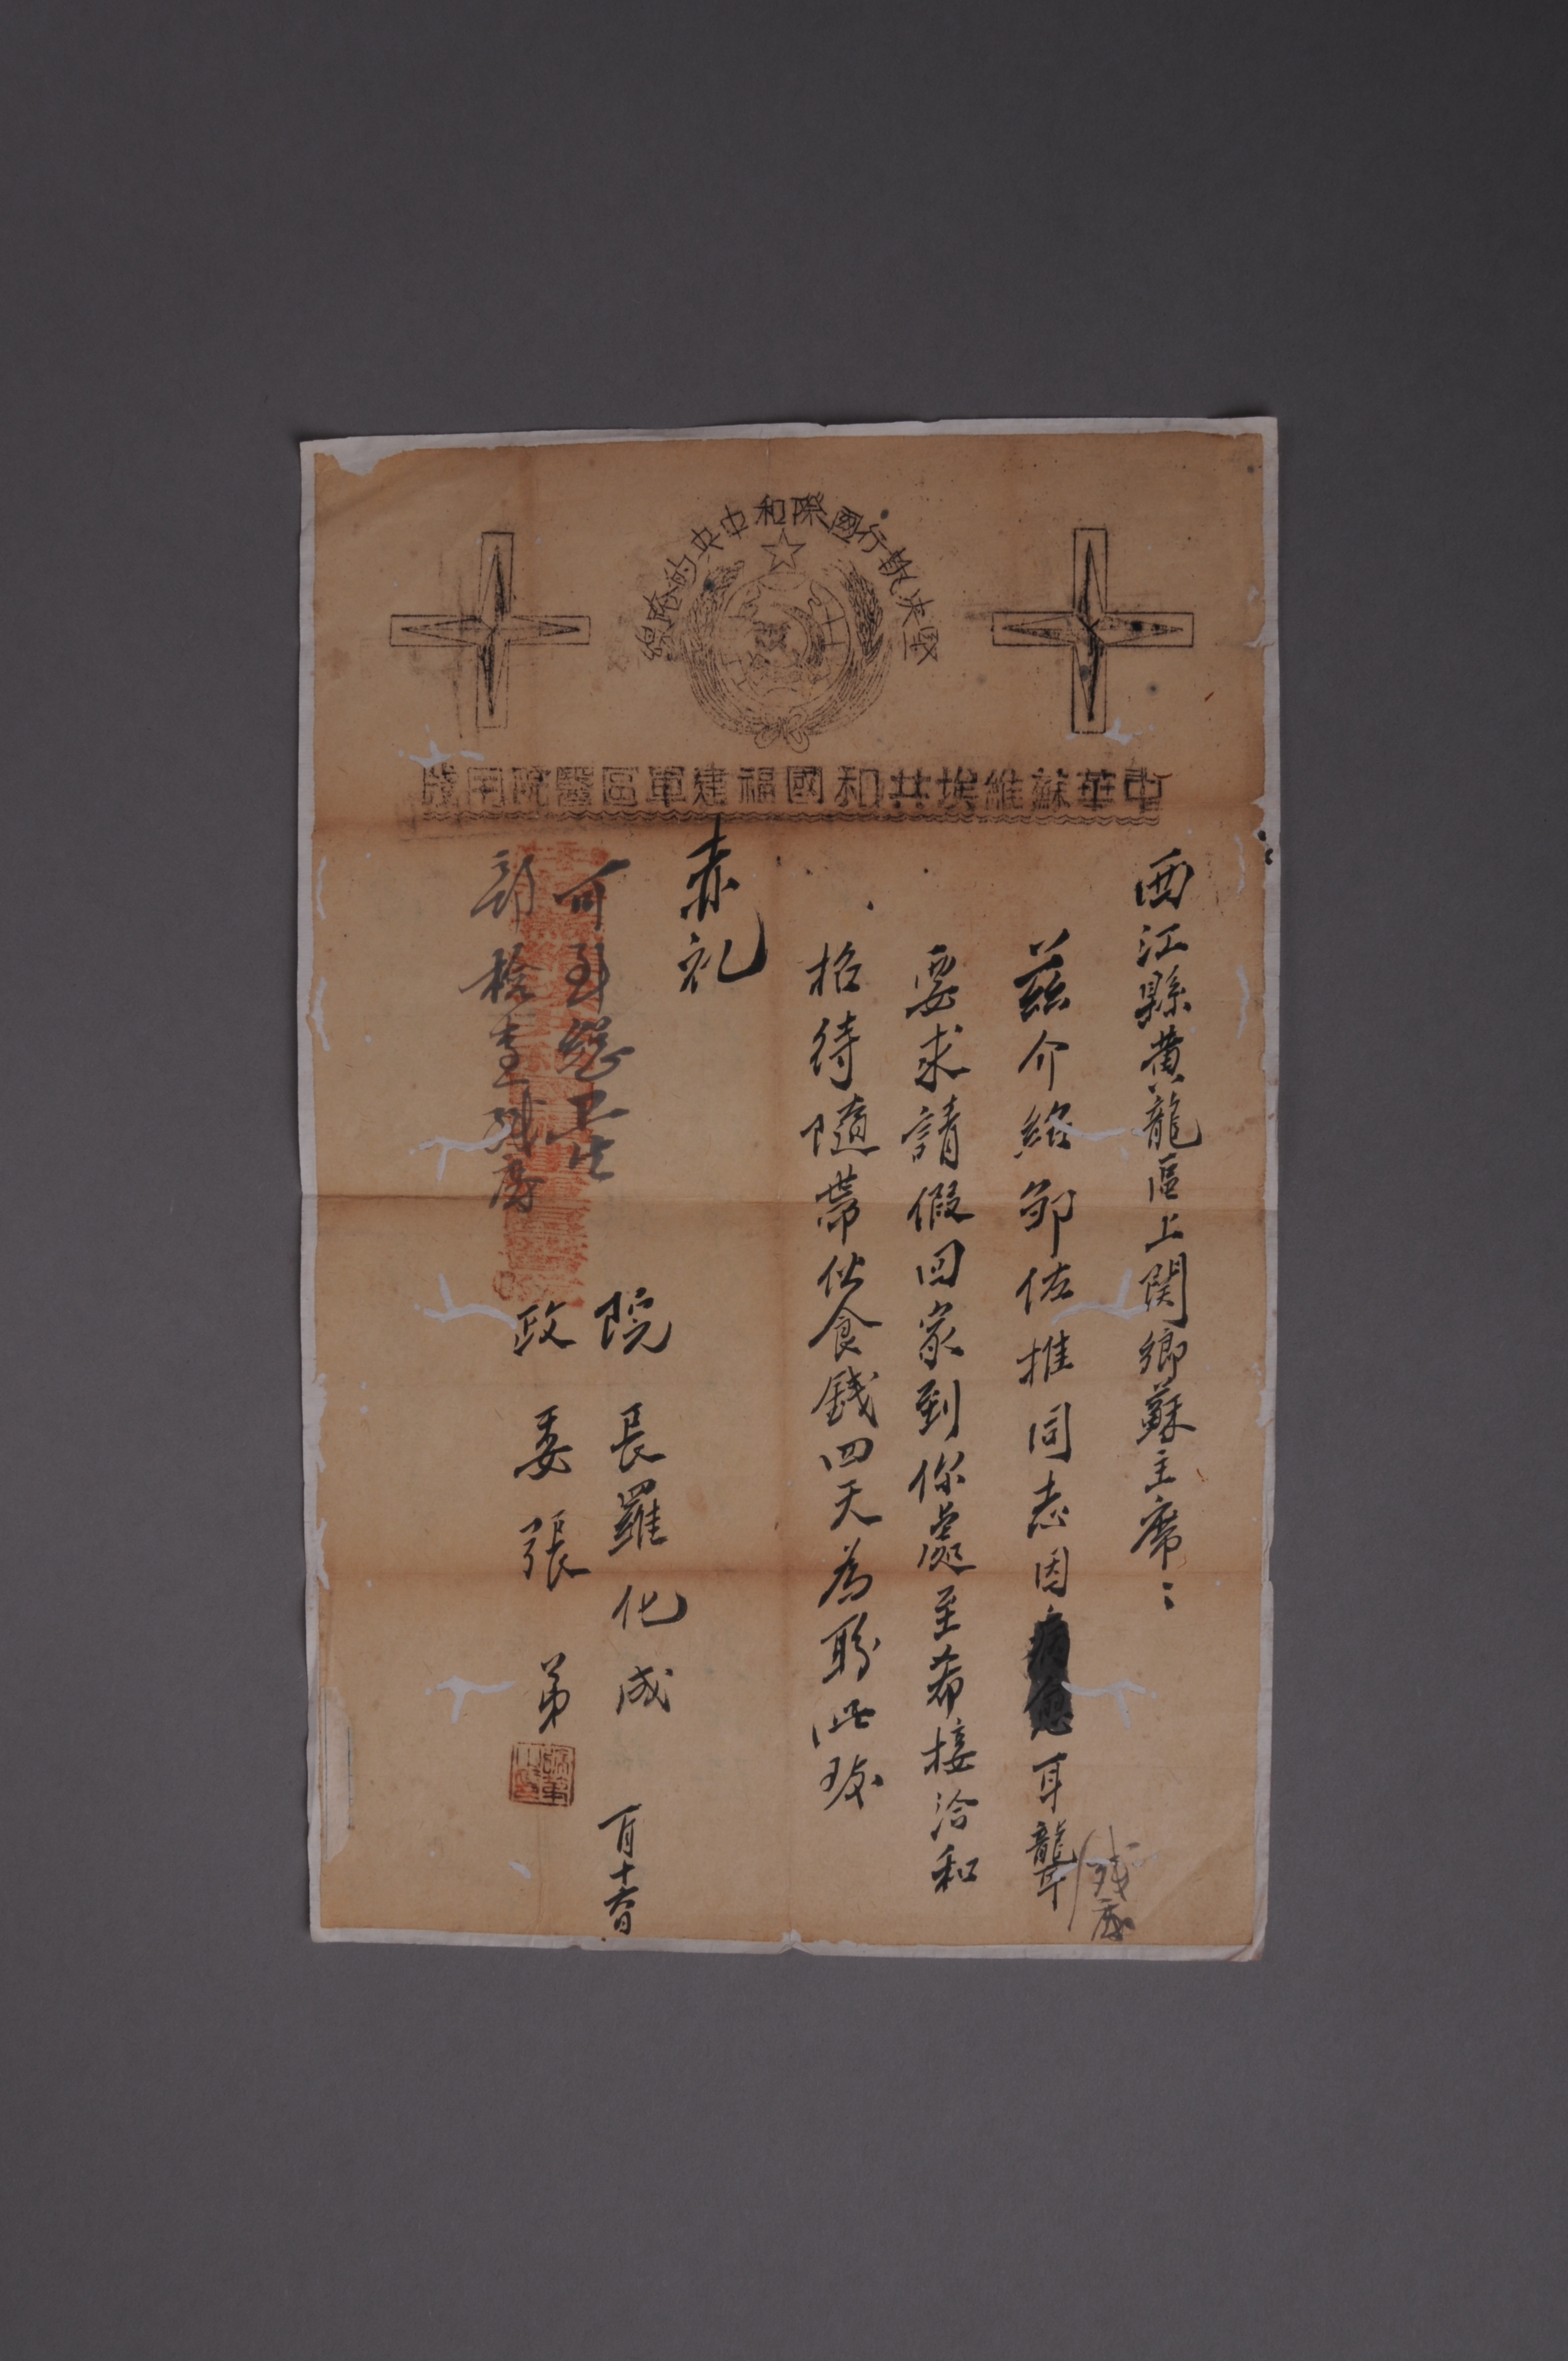 堅决執行國際和中央的路線
中華蘇維埃共和國福建軍區醫院用牋
西江縣黄龍區上関鄉蘇主席：
兹介紹邹佐推同志因病愈耳聾
残廢
要求請假回家到你處至希接洽和
招待隨帶伙食錢四天為盼此致
赤礼
院長羅化成
政委張弟
可到總卫生
部檢查残廢